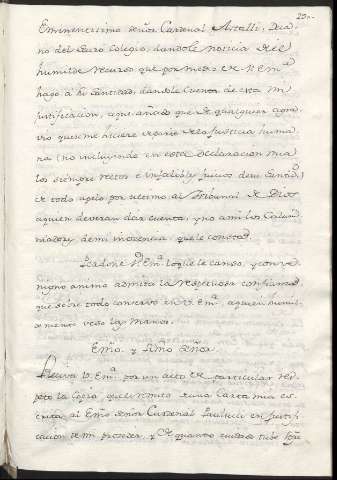 Eminentissimo Señor Cardenal Astalli, Deca-
no del Sacro Colegio, dandole noticia de el
humilde recurso que por medio de V. Em.ª
hago a Su Santidad, dandole Cuenta de esta mi
justificacion, aqui añado que de qualquier agra-
vio que se me hiciere departe de la Justicia huma-
na (no incluyendo en esta declaracion mia
los siempre rectos e infalibles juicios de su Santid.ᵈ)
de todo apelo por ultimo al Tribunal de Dios
a quien deveran dar cuenta, y no ami los Calum-
niadores de mi inocencia, que le consta.
Perdone V. Em.ª lo que le canso, y con ve-
nigno animo admita la respetuosa confianza
que sobre todo conservo en V. Em.ª a quien humil-
mente veso las Manos.
Emō. y Rmō Señor
Reciva V. Em.ª por un acto de particular res-
peto la Copia que le remito de una Carta mia es-
crita al Emō Señor Cardenal Pauluci en justifi-
cacion de mi proceder, y de quanto cuidado tube